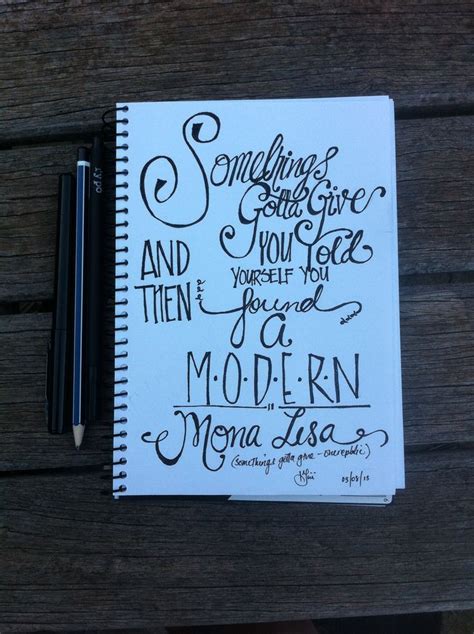 Somethings
Gotta Give
YOU Told
YOURSELF YOU
AND
THEN
found
A
M·O·D·E·R·N
Mona Lisa
(something's gotta give - onerepublic)
05/03/15
typo